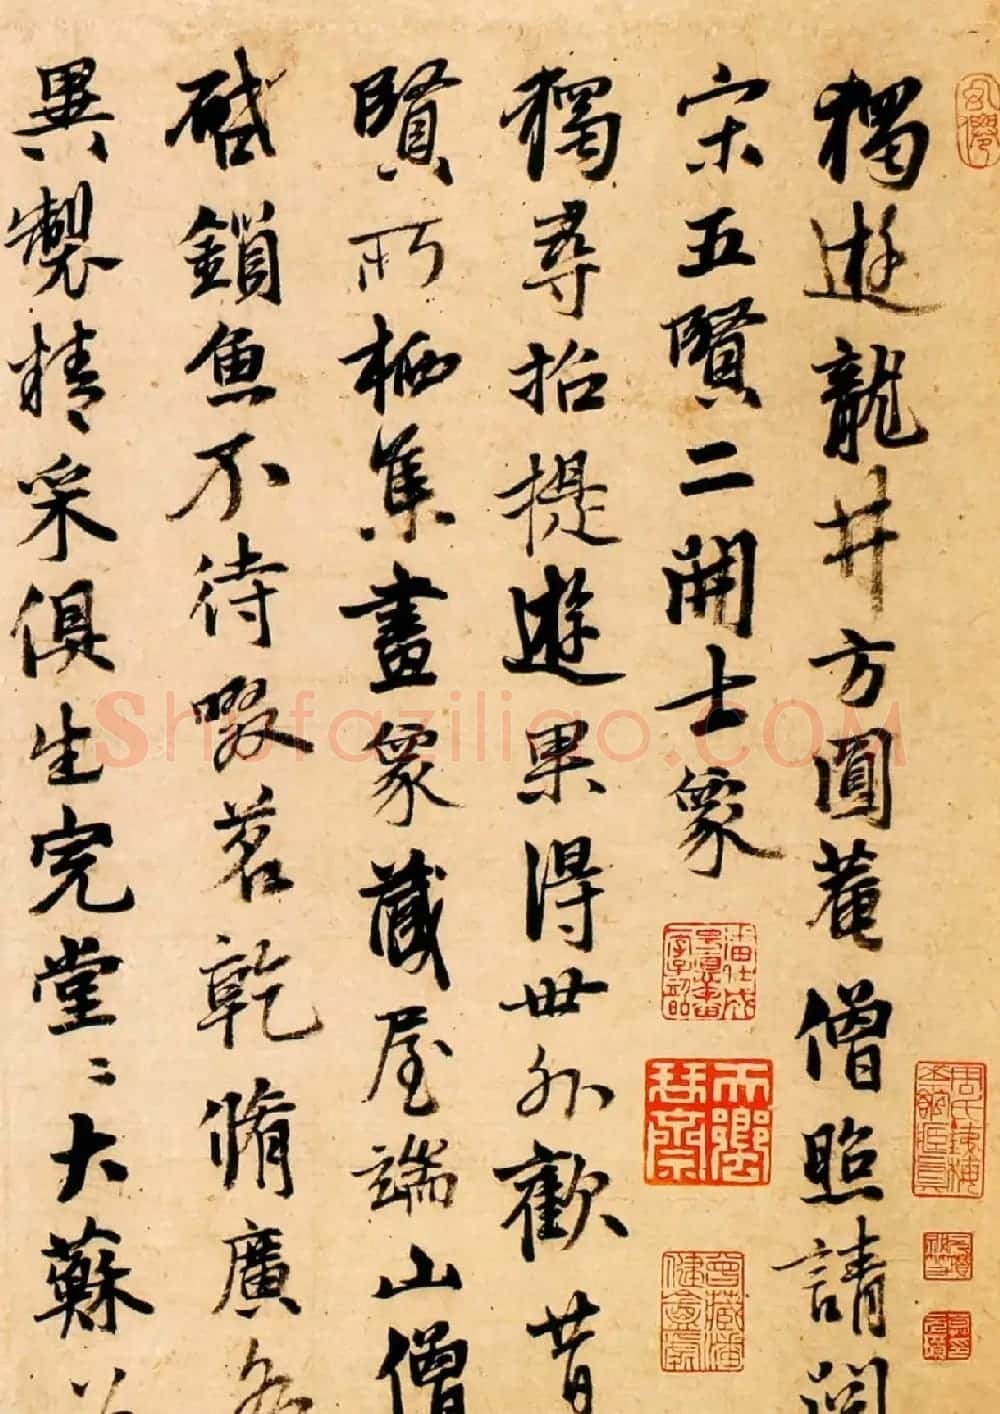 獨遊龍井方圓菴僧照請
宋五賢二開士象
獨尋招提遊果得世外歡昔
賢所栖集畫象藏屋端山僧
啟鎖魚不待啜茗乾脩廣各
異製精采俱生完堂〻大蘇
Shufaziliao.COM